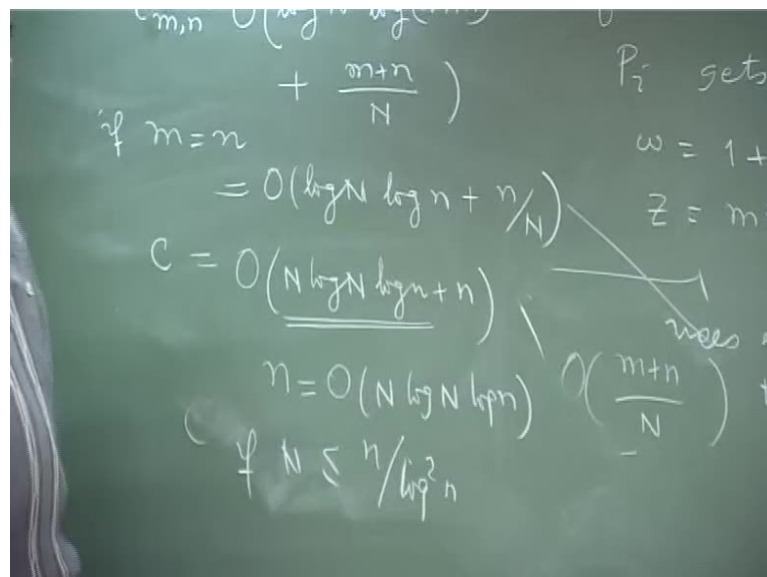 m,n O(log N log(
+ m+n/N )
if m = n
= O(log N log n + n/N)
C = O(N log N log n + n)
n = O(N log N log n)
( if N ≤ n/log² n
P_i gets
ω = 1 +
Z = m
uses
O( m+n/N )